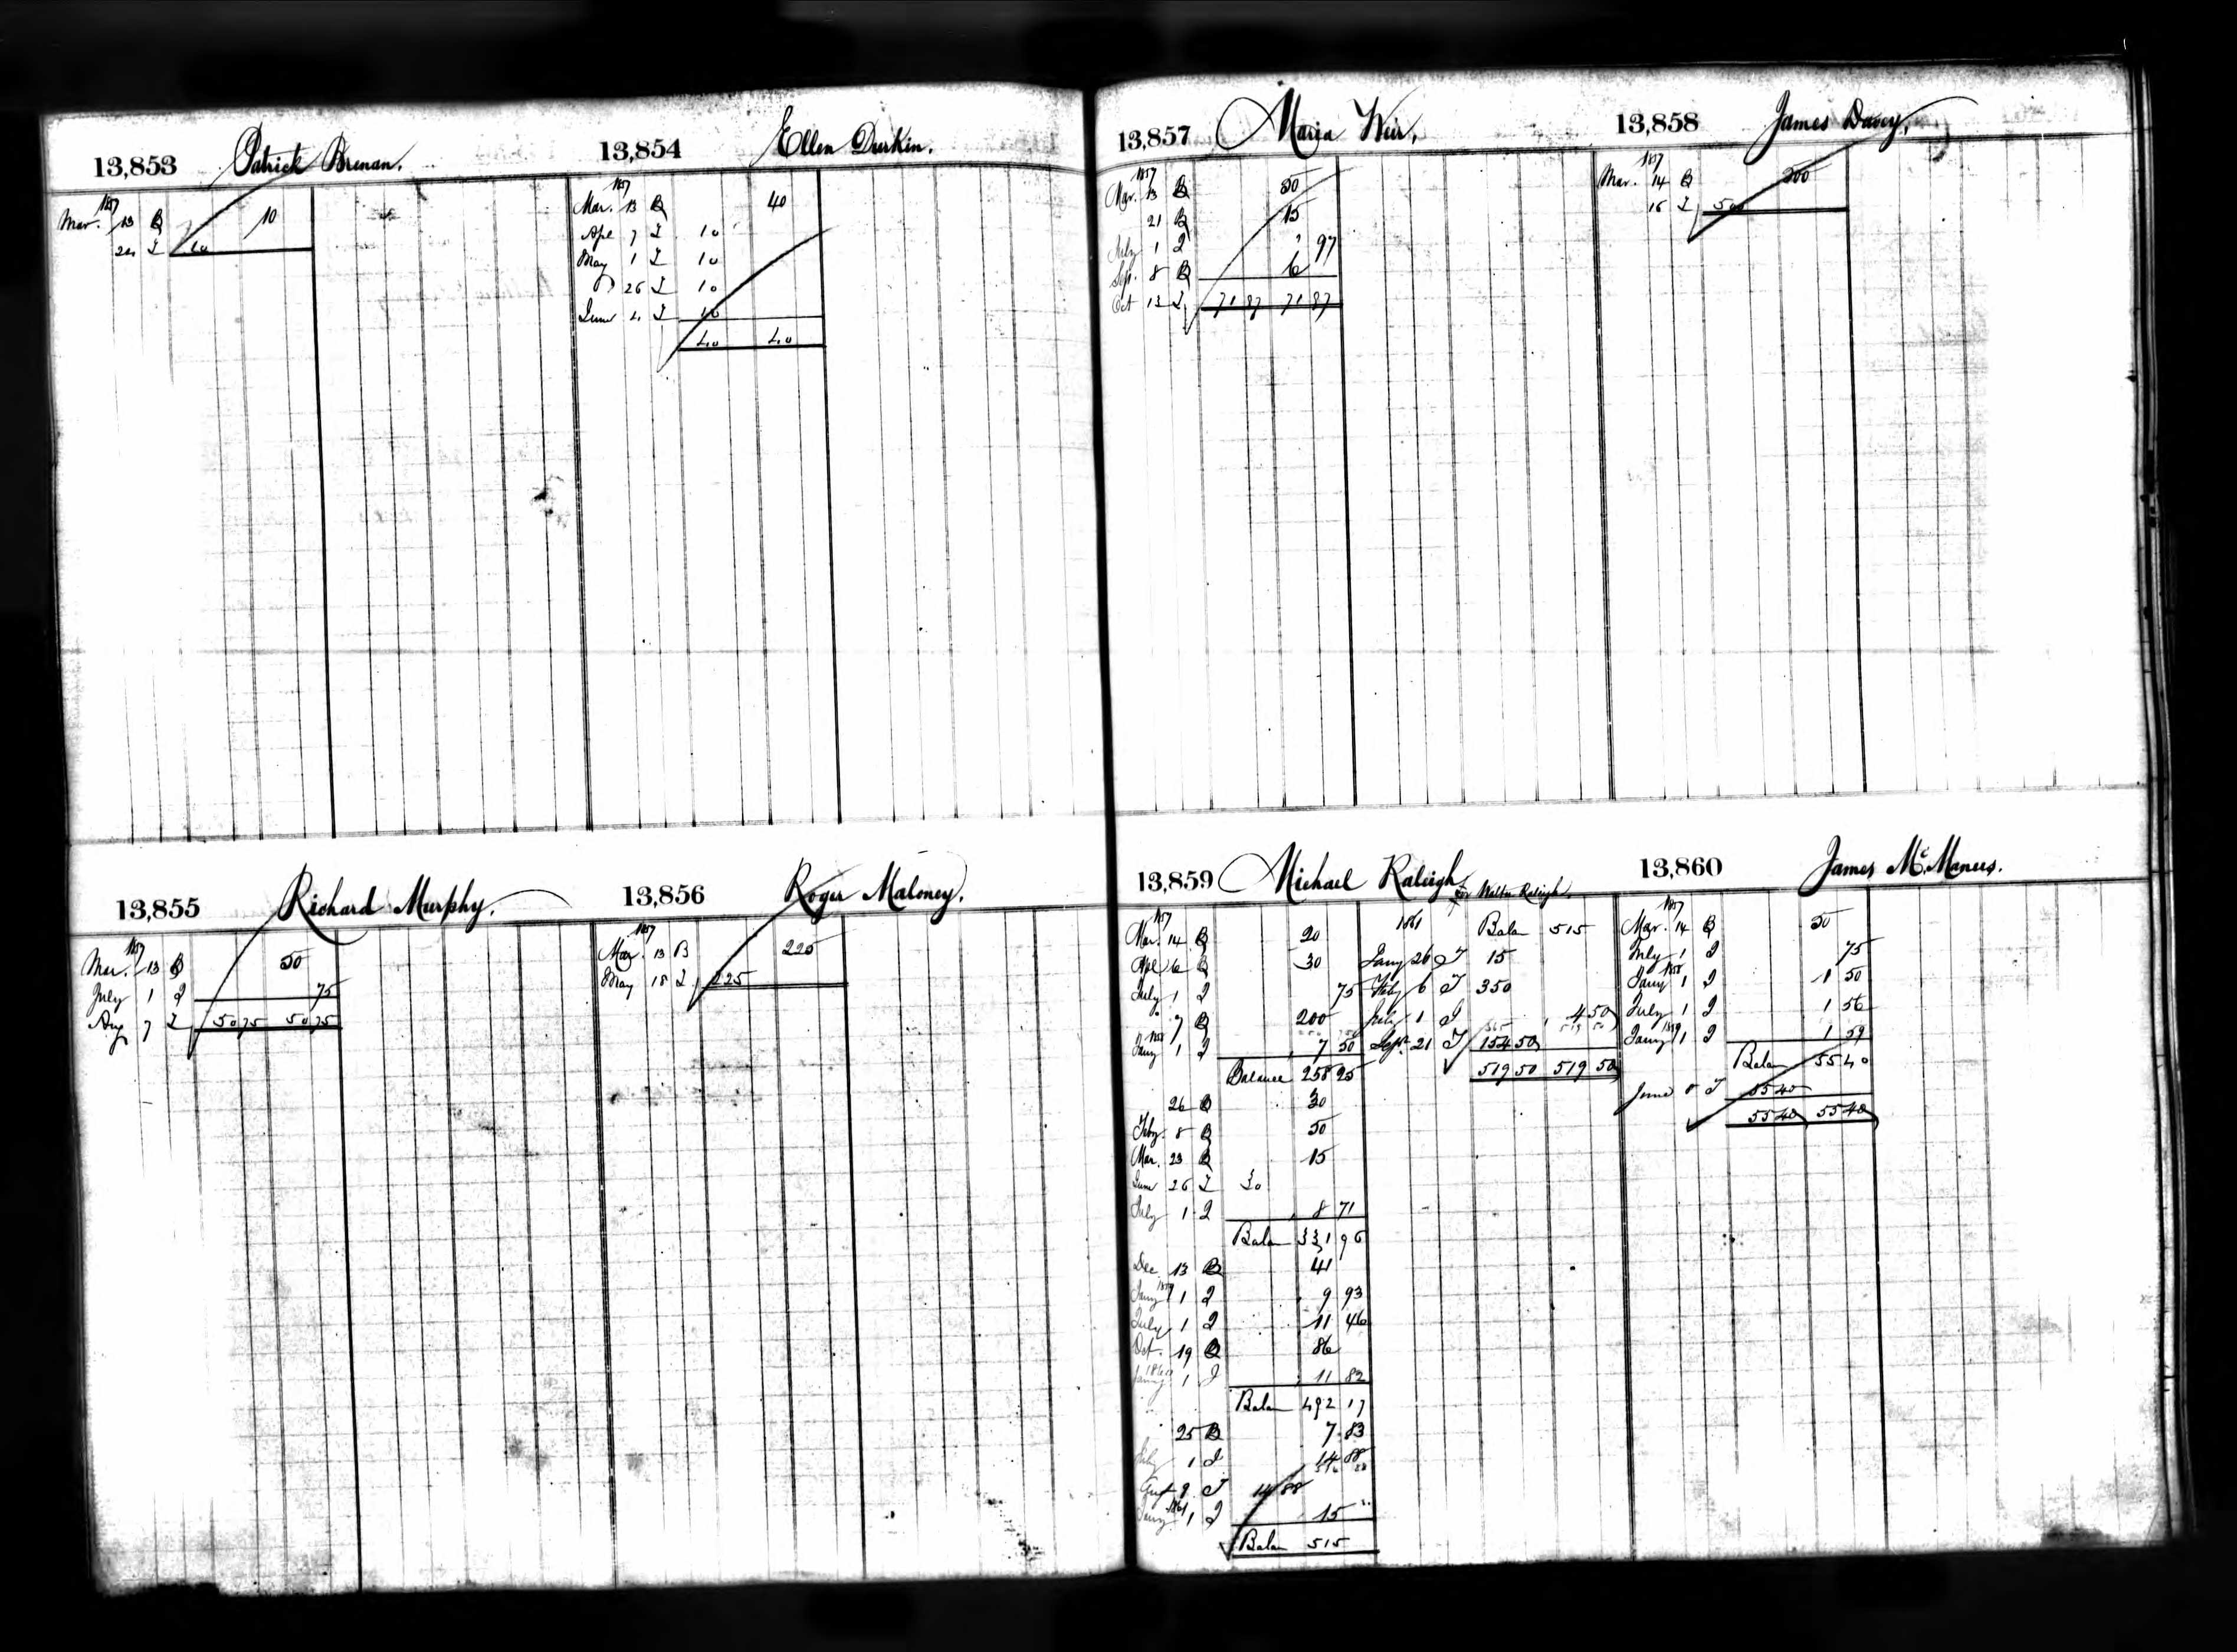 13,853 Patrick Brenan.
1857
Mar. 13 B 10
24 T 10
13,854 Ellen Durkin.
1857
Mar. 13 B 40
Apl 7 T 10
May 1 T 10
26 T 10
June 4 T 10
40 40
13,855 Richard Murphy.
1857
Mar. 13 B 50
July 1 I 75
Aug 7 T 50 75 50 75
13,856 Roger Maloney.
1857
Mar. 13 B 225
May 18 T 225
13,857 Maria Weir,
1857
Mar. 13 B 50
21 B 15
July 1 I 97
Sep. 8 B 6
Oct 13 T 71 87 71 87
13,858 James Davey,
1857
Mar. 14 B 500
16 T 500
13,859 Michael Raleigh for Walter Raleigh.
1857
Mar. 14 B 20
Apl 6 B 30
July 1 I 75
7 B 200
1858
Jany 1 I 7 50
Balance 258 25
26 B 30
Feby 8 B 50
Mar. 23 B 15
June 26 T 30
July 1 I 8 71
Balan 331 96
Dec 13 B 41
1859
Jany 1 I 9 93
July 1 I 11 46
Oct. 19 B 86
1860
Jany 1 I 11 82
Balan 492 17
25 B 7 83
July 1 I 14 88
Augt 9 T 14 88
1861
Jany 1 I 15
Balan 515
1861 Balan 515
Jany 26 T 15
Feby 6 T 350
July 1 I 4 50
Sept. 21 T 154 50
519 50 519 50
13,860 James McManus.
1857
Mar. 14 B 50
July 1 I 75
1858
Jany 1 I 1 50
July 1 I 1 56
1859
Jany 1 I 1 59
Balan 55 40
June 8 T 55 40
55 40 55 40